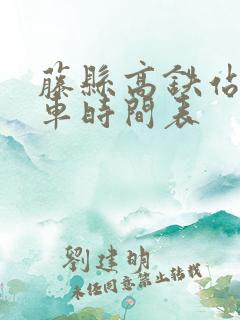 藤縣高鉄佔
車時間表
劉建明
未经同意禁止转载